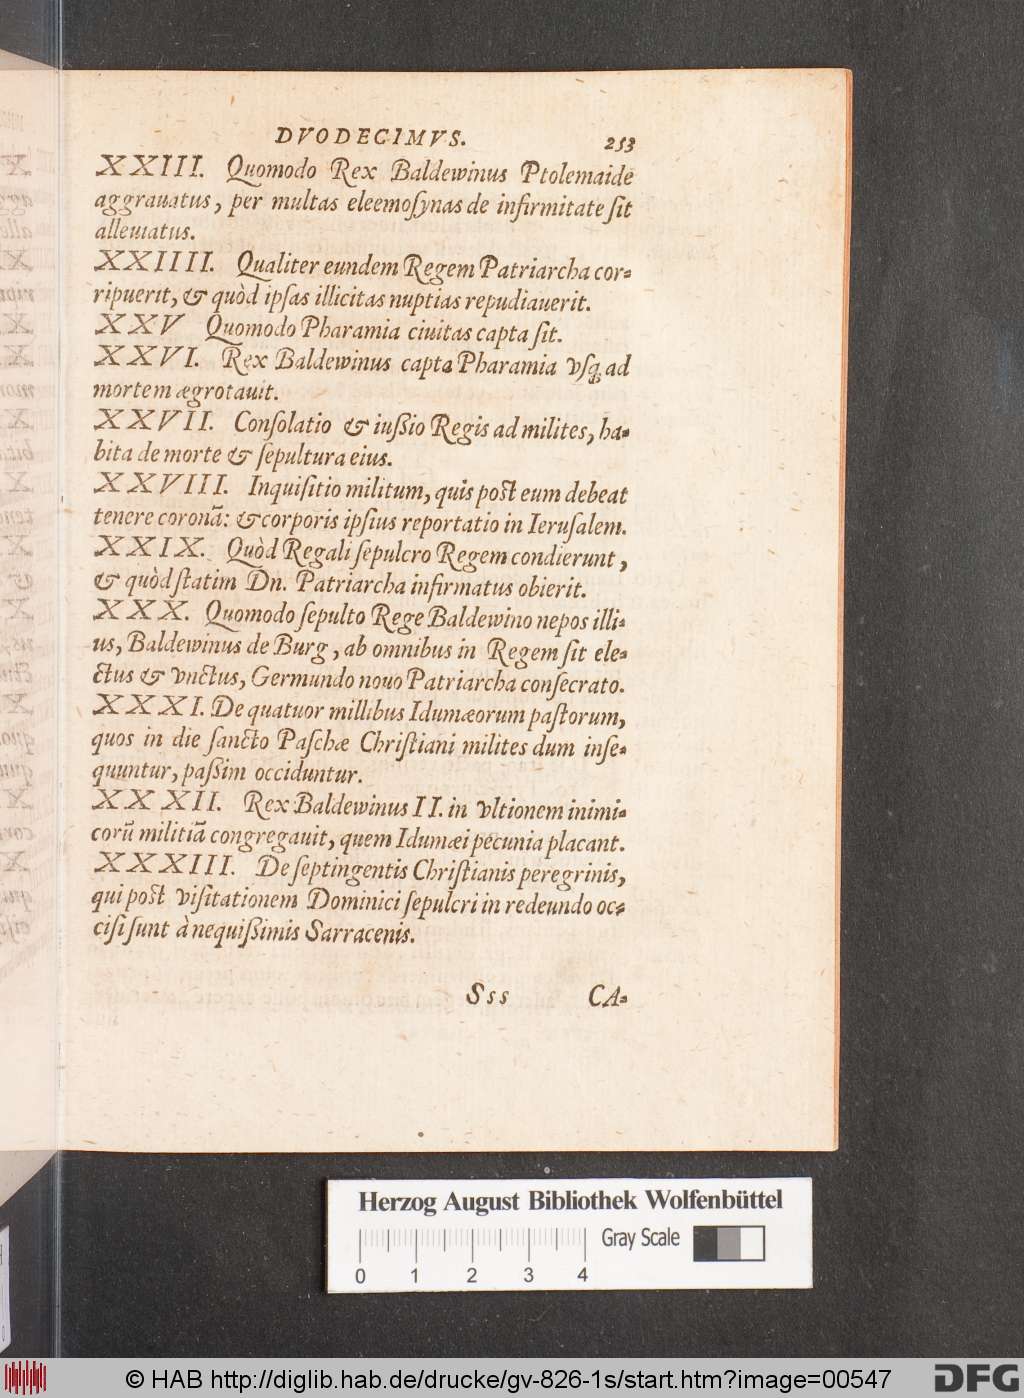 DVODECIMVS. 253
XXIII. Quomodo Rex Baldewinus Ptolemaide
aggrauatus, per multas eleemoſynas de infirmitate ſit
alleuiatus.
XXIIII. Qualiter eundem Regem Patriarcha cor-
ripuerit, & quòd ipſas illicitas nuptias repudiauerit.
XXV Quomodo Pharamia ciuitas capta ſit.
XXVI. Rex Baldewinus capta Pharamia vſq; ad
mortem ægrotauit.
XXVII. Conſolatio & iuſsio Regis ad milites, ha-
bita de morte & ſepultura eius.
XXVIII. Inquiſitio militum, quis poſt eum debeat
tenere coronã: & corporis ipſius reportatio in Ieruſalem.
XXIX. Quòd Regali ſepulcro Regem condierunt,
& quòd ſtatim Dn. Patriarcha infirmatus obierit.
XXX. Quomodo ſepulto Rege Baldewino nepos illi-
us, Baldewinus de Burg, ab omnibus in Regem ſit ele-
ctus & vnctus, Germundo nouo Patriarcha conſecrato.
XXXI. De quatuor millibus Idumæorum paſtorum,
quos in die ſancto Paſchæ Chriſtiani milites dum inſe-
quuntur, paſsim occiduntur.
XXXII. Rex Baldewinus II. in vltionem inimi-
corũ militiã congregauit, quem Idumæi pecunia placant.
XXXIII. De ſeptingentis Chriſtianis peregrinis,
qui poſt viſitationem Dominici ſepulcri in redeundo oc-
ciſi ſunt à nequiſsimis Sarracenis.
Sss CA-
Herzog August Bibliothek Wolfenbüttel
Gray Scale
0 1 2 3 4
© HAB http://diglib.hab.de/drucke/gv-826-1s/start.htm?image=00547
DFG